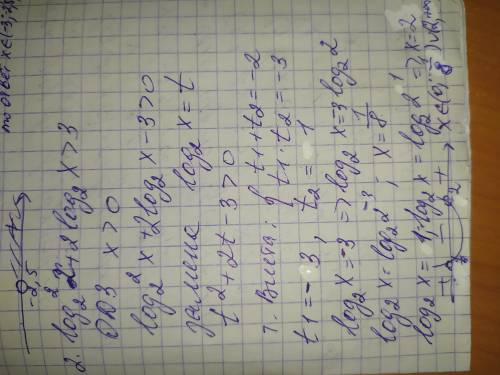 то ответ x∈(-3;-2,5
-2,5
2. log₂²x+2log₂x>3
ОДЗ x>0
log₂²x+2log₂x-3>0
замена log₂x=t
t²+2t-3>0
т. Виета: { t1+t2=-2
t1·t2=-3
t1=-3, t2=1
log₂x=-3 => log₂x=-3log₂2
log₂x=log₂2⁻³; x=1/8
log₂x=1; log₂x=log₂2¹ => x=2